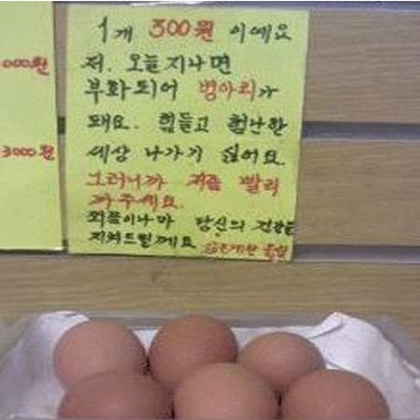 000원
3000원
1개 300원 이예요
저. 오늘지나면
부화되어 병아리가
돼요. 힘들고 험난한
세상 나가기 싫어요.
그러니까 저를 빨리
까주세요.
당신의 건강을
지켜드릴께요 삶은계란 올림